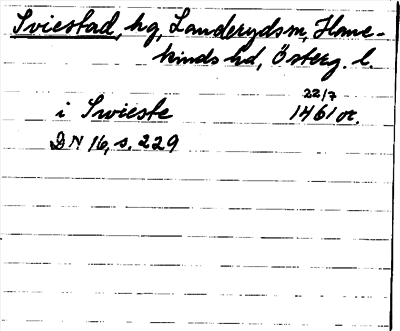 Sviestad, hg, Landerydsm, Hane-
kinds hd, Österg. l.
22/7
i Swieste 1461 or.
DN 16, s. 229